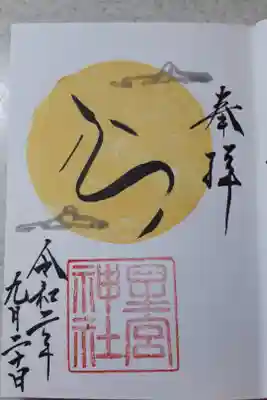 奉拝
宮
神社
令和二年
九月二十日